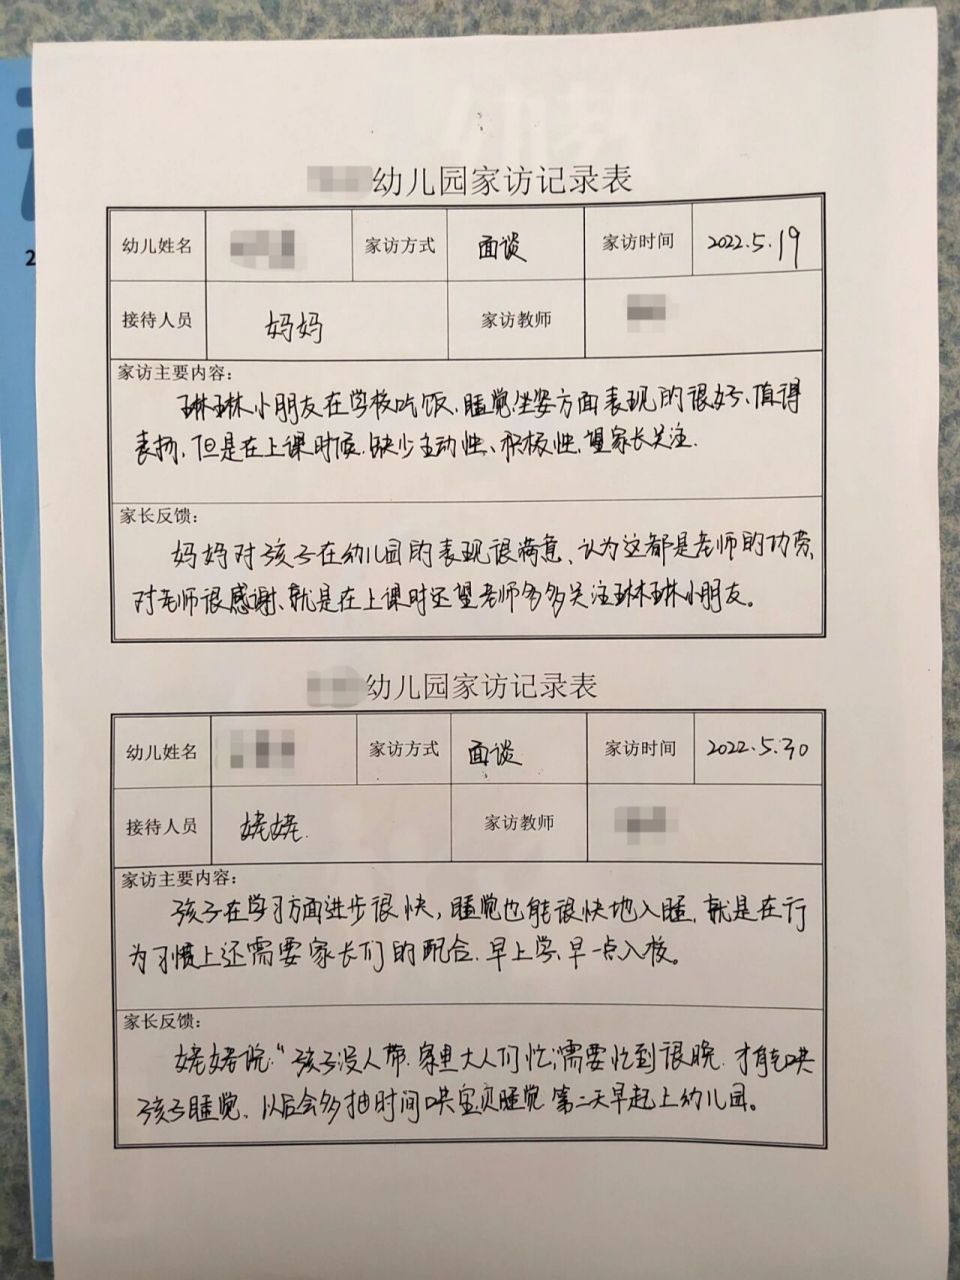 幼教
2
幼儿园家访记录表
幼儿姓名 家访方式 面谈 家访时间 2022.5.19
接待人员 妈妈 家访教师
家访主要内容：
琳琳小朋友在学校吃饭、睡觉、坐姿方面表现的很好、值得
表扬，但是在上课时候，缺少主动性、积极性，望家长关注.
家长反馈：
妈妈对孩子在幼儿园的表现很满意、认为这都是老师的功劳，
对老师很感谢、就是在上课时还望老师多多关注琳琳小朋友。
幼儿园家访记录表
幼儿姓名 家访方式 面谈 家访时间 2022.5.30
接待人员 姥姥. 家访教师
家访主要内容：
孩子在学习方面进步很快，睡觉也能很快地入睡，就是在行
为习惯上还需要家长们的配合.早上学,早一点入校。
家长反馈：
姥姥说："孩子没人带.家里大人们忙;需要忙到很晚.才能哄
孩子睡觉、以后会多抽时间哄宝贝睡觉 第二天早起上幼儿园。